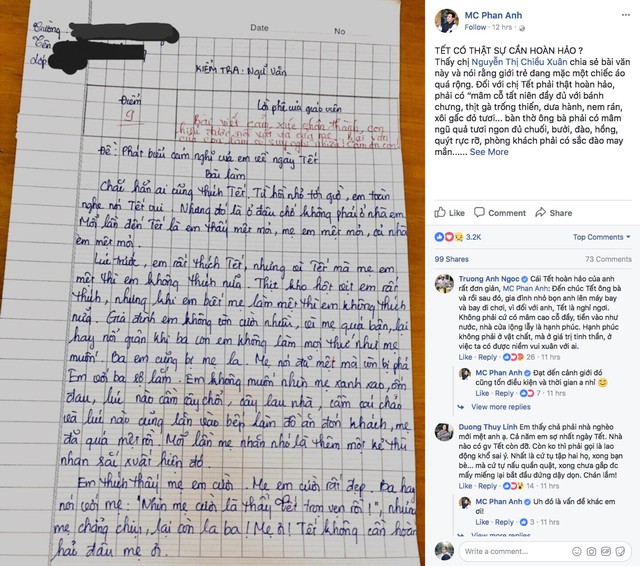 Date
No
Trường:
Tên
Lớp
KIỂM TRA: Ngữ Văn
Điểm
Lời phê của giáo viên
9
Bài viết cảm xúc chân thành, con
Đề: Phát biểu cảm nghĩ của em về ngày Tết
Bài làm
Chắc hẳn ai cũng thích Tết. Từ hồi nhỏ tới giờ, em toàn
nghe nói Tết vui. Nhưng đó là ở đâu chứ không phải ở nhà em.
Mỗi lần đến Tết là em thấy mệt mỏi, mẹ em mệt mỏi, cả nhà
em mệt mỏi.
Lúc trước, em rất thích Tết, nhưng vì Tết mà mẹ em
mệt thì em không thích nữa. Thịt kho hột vịt em rất
thích, nhưng khi em biết mẹ làm mệt thì em không thích
nữa. Gia đình em không còn cười nhiều, vì mẹ quá bận, lại
hay nổi giận khi ba con em không làm mọi thứ như mẹ
muốn. Ba em cũng bị mẹ la. Mẹ nói đã mệt mà còn bị phá.
Em với ba sợ lắm. Em không muốn nhìn mẹ xanh xao, ốm
đau, lúc nào cầm cây chổi, cây lau nhà, cầm cái chảo
và lúc nào cũng lẩn vào bếp làm đồ ăn đón khách, mẹ
đã quá mệt rồi. Mỗi lần mẹ nhăn nhó là thêm một kẻ thù
nhan sắc xuất hiện đó.
Em thích thấy mẹ em cười. Mẹ em cười rất đẹp. Ba hay
nói với mẹ: "Nhìn mẹ cười là thấy Tết trọn vẹn rồi!", nhưng
mẹ chẳng chịu, lại còn la ba! Mẹ ơi! Tết không cần hoàn
hảo đâu mẹ ơi.
MC Phan Anh
Follow · 12 hrs ·
TẾT CÓ THẬT SỰ CẦN HOÀN HẢO ?
Thấy chị Nguyễn Thị Chiều Xuân chia sẻ bài văn
này và nói rằng giới trẻ đang mặc một chiếc áo
quá rộng. Đối với chị Tết phải thật hoàn hảo,
phải có "mâm cỗ tất niên đầy đủ với bánh
chưng, thịt gà trống thiến, dưa hành, nem rán,
xôi gấc đỏ tươi... bàn thờ ông bà phải có mâm
ngũ quả tươi ngon đủ chuối, bưởi, đào, hồng,
quýt rực rỡ, phòng khách phải có sắc đào may
mắn...... See More
Like Comment Share
3.2K
Top Comments
99 Shares
73 Comments
Truong Anh Ngoc Cái Tết hoàn hảo của anh
rất đơn giản, MC Phan Anh: Đến chúc Tết ông bà
và rồi sau đó, gia đình nhỏ bọn anh lên máy bay
và bay đi chơi, vì đối với anh, Tết là nghỉ ngơi.
Không phải cứ có mâm cao cỗ đầy, tiền vào như
nước, nhà cửa lộng lẫy là hạnh phúc. Hạnh phúc
không phải ở vật chất, mà ở giá trị tinh thần, ở
việc ta có được niềm vui xuân với ai.
Like · Reply · 26 · 11 hrs
MC Phan Anh Đạt đến cảnh giới đó
cũng tốn điều kiện và thời gian a nhỉ
Like · Reply · 7 · 11 hrs
View more replies
Duong Thuy Linh Em thấy chả phải nhà nghèo
mới mệt anh ạ. Cả năm em sợ nhất ngày Tết. Nhà
nào có gv Tết còn đỡ. Còn ko thì phải gọi là lao
động khổ sai ý. Nhất là cứ tụ tập hai họ, xong bạn
bè... mà cứ tự nấu quần quật, xong chưa gắp đc
mấy miếng lại bắt đầu đứng dậy dọn. Chán lắm!
Like · Reply · 14 · 11 hrs
MC Phan Anh Uh đó là vấn đề khác em
ơi!
Like · Reply · 3 · 11 hrs
View more replies
Write a comment...